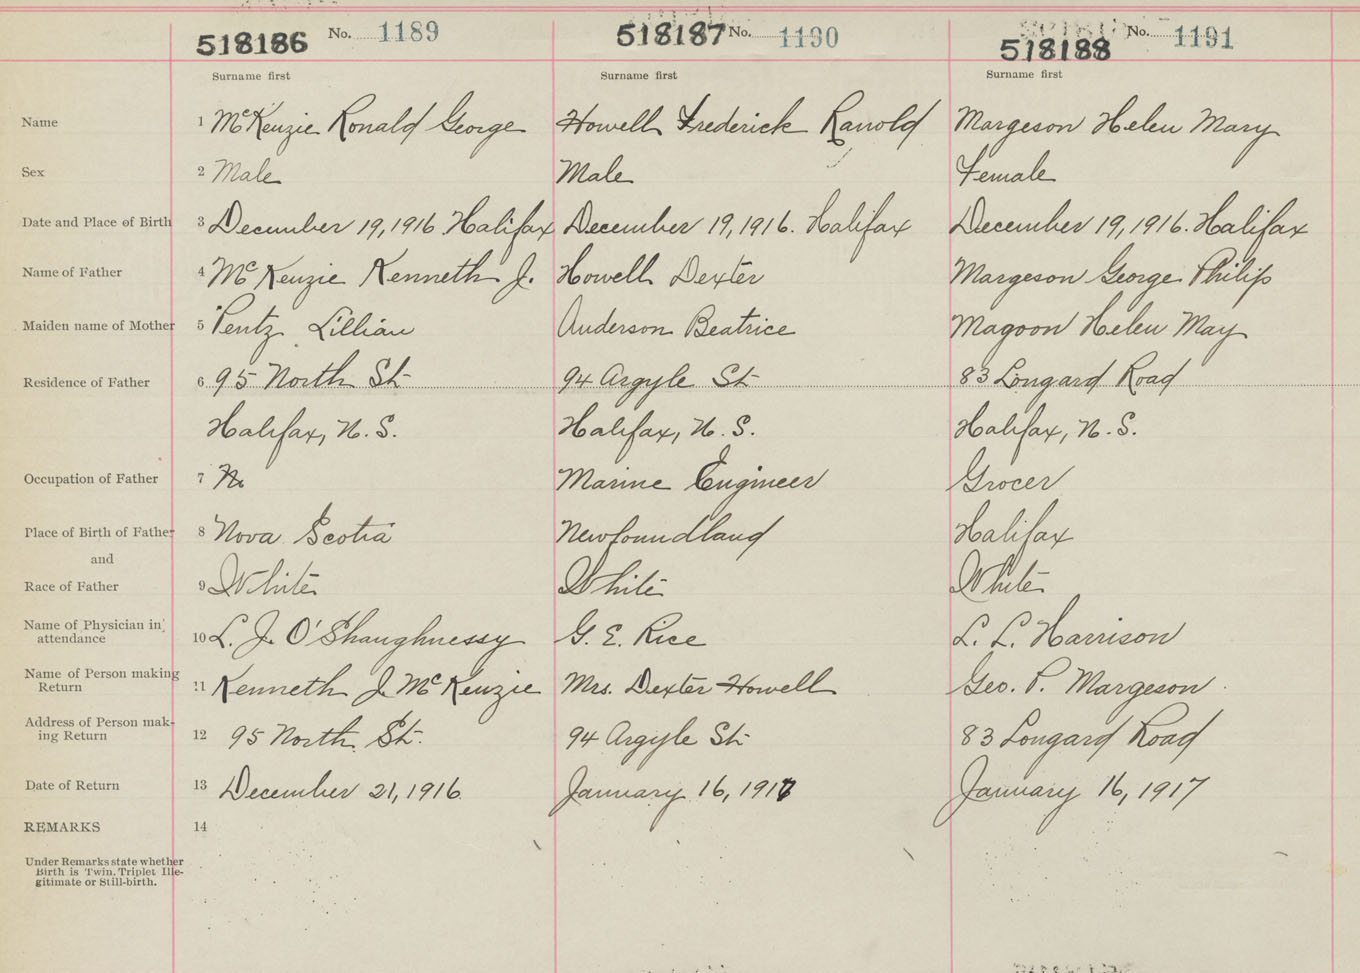 518186 No. 1189 518187 No. 1190 518188 No. 1191
Surname first Surname first Surname first
Name 1 McKenzie Ronald George Howell Frederick Ranold Margeson Helen Mary
Sex 2 Male Male Female
Date and Place of Birth 3 December 19, 1916 Halifax December 19, 1916. Halifax December 19, 1916. Halifax
Name of Father 4 McKenzie Kenneth J. Howell Dexter Margeson George Philip
Maiden name of Mother 5 Pentz Lillian Anderson Beatrice Magoon Helen May
Residence of Father 6 95 North St 94 Argyle St 83 Longard Road
Halifax, N.S. Halifax, N.S. Halifax, N.S.
Occupation of Father 7 Marine Engineer Grocer
Place of Birth of Father 8 Nova Scotia Newfoundland Halifax
and
Race of Father 9 White White White
Name of Physician in
attendance 10 L. J. O'Shaughnessy G. E. Rice L. L. Harrison
Name of Person making
Return 11 Kenneth J. McKenzie Mrs. Dexter Howell Geo. P. Margeson
Address of Person mak-
ing Return 12 95 North St. 94 Argyle St 83 Longard Road
Date of Return 13 December 21, 1916 January 16, 1917 January 16, 1917
REMARKS 14
Under Remarks state whether
Birth is Twin, Triplet Ille-
gitimate or Still-birth.